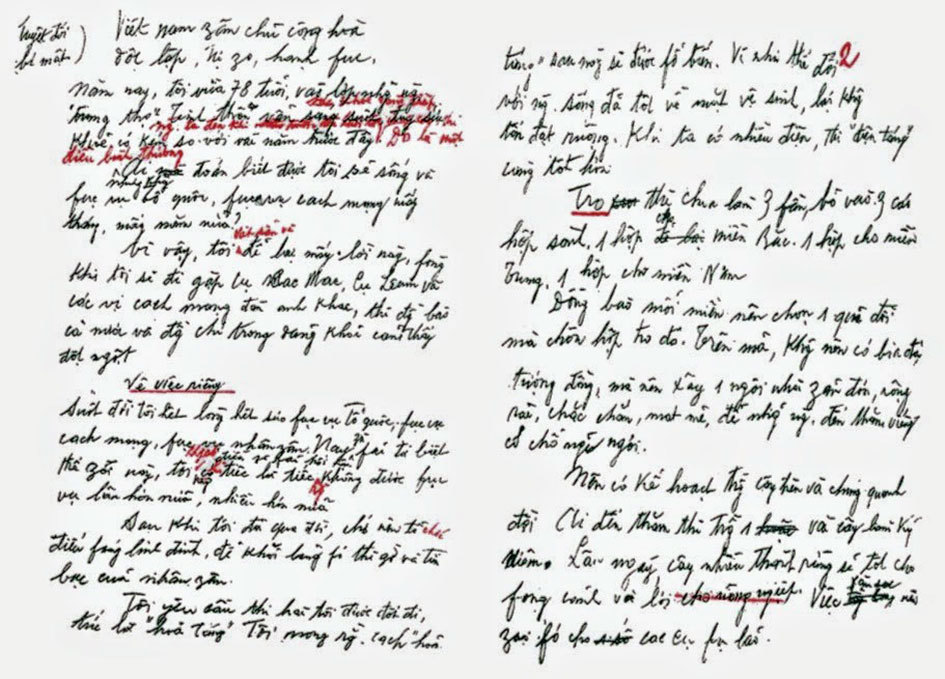 Tuyệt đối
bí mật )
Việt nam zân chủ cộng hoà
độc lập, tự zo, hạnh fúc,
Năm nay, tôi vừa 78 tuổi, vào lớp những ng.
"trung thọ". Tinh thần vẫn sáng suốt, thân thể
khoẻ, có kém so với vài năm trước đây. Đó là một
điều bình thường
Ai mà đoán biết được tôi sẽ sống và
fục vụ tổ quốc, fục vụ cách mạng mấy
tháng, mấy năm nữa?
Vì vậy, tôi để lại mấy lời này, fòng
khi tôi sẽ đi gặp cụ Các Mác, Cụ Lênin và
các vị cách mạng đàn anh khác, thì đg bào
cả nước và đg chí trong đảng khỏi cảm thấy
đột ngột
Về việc riêng
Suốt đời tôi hết lòng hết sức fục vụ Tổ quốc, fục vụ
cách mạng, fục vụ nhân zân. Nay zù fải từ biệt
thế zới này, tôi không có điều gì fải hối hận
chỉ tiếc là tiếc không được fục
vụ lâu hơn nữa, nhiều hơn nữa
Sau khi tôi đã qua đời, chớ nên tổ chức
điếu fúng linh đình, để khỏi lãng fí thì giờ và tiền
bạc của nhân zân.
Tôi yêu cầu thi hài tôi được đốt đi,
tức là "hoả táng" Tôi mong rằng cách "hoả
2
táng" sau này sẽ được fổ biến. Vì như thế đối
với ng. sống đã tốt về mặt vệ sinh, lại khg
tốn đất ruộng. Khi ta có nhiều điện, thì "điện táng"
càng tốt hơn
Tro thì chia làm 3 fần, bỏ vào 3 cái
hộp sành, 1 hộp cho miền Bắc. 1 hộp cho miền
Trung, 1 hộp cho miền Nam
Đồng bào mỗi miền nên chọn 1 quả đồi
mà chôn hộp tro đó. Trên mả, khg nên có bia đá
tượng đồng, mà nên xây 1 ngôi nhà zản đơn, rộng
rãi, chắc chắn, mát mẻ, để những ng. đến thăm viếng
có chỗ nghỉ ngơi.
Nên có kế hoạch trồng cây trên và chung quanh
đồi Ai đến thăm thì trồng 1 vài cây làm kỷ
niệm. Lâu ngày cây nhiều thành rừng sẽ tốt cho
fong cảnh và lợi cho nông nghiệp. Việc săn sóc nên
zao fó cho các cụ fụ lão.